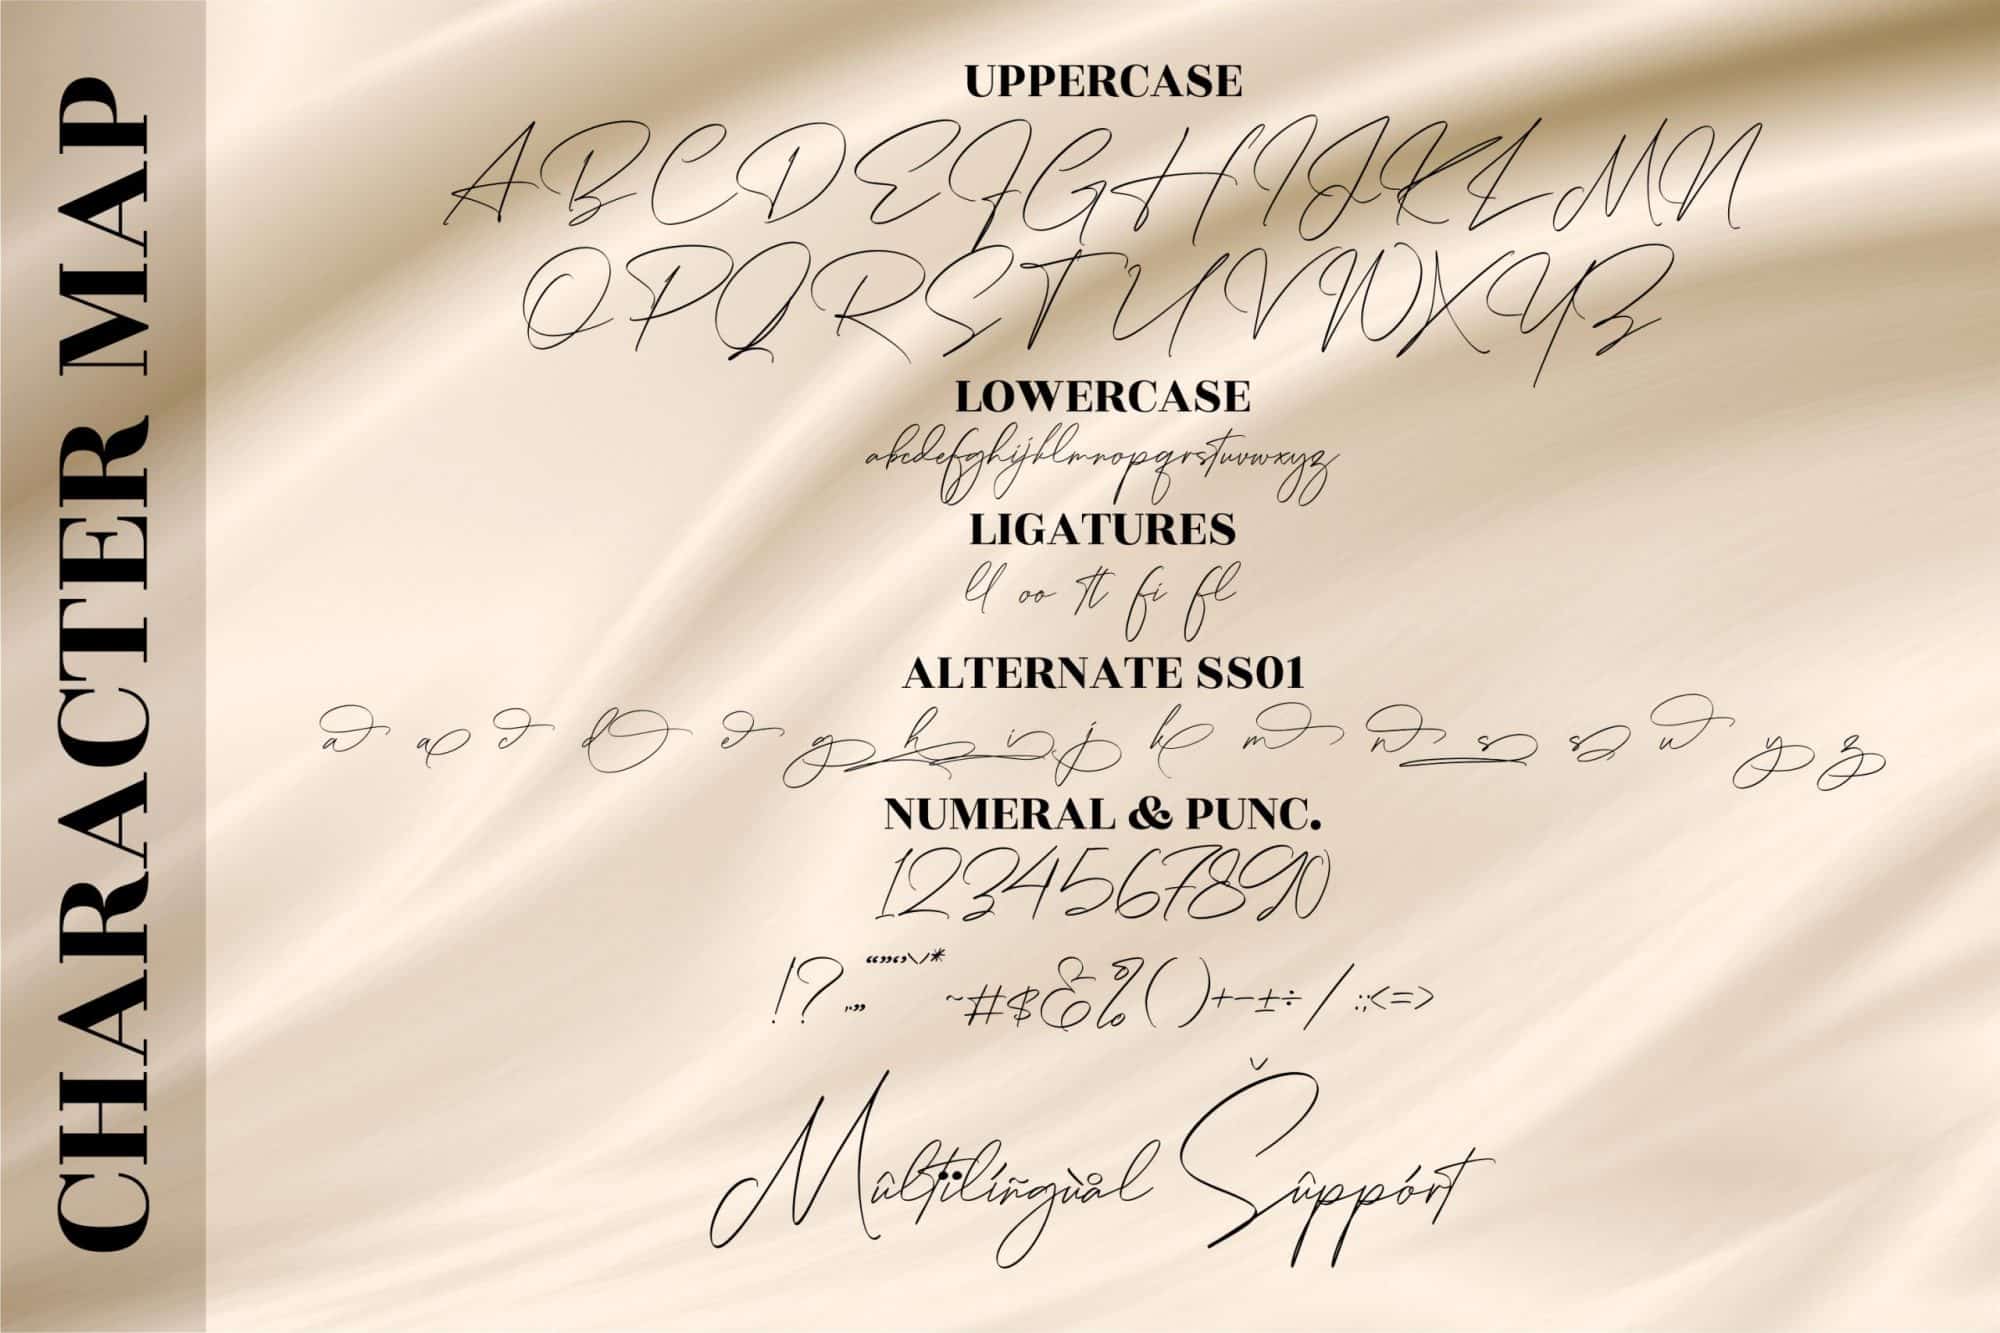 CHARACTER MAP
UPPERCASE
ABCDEFGHIJKLMN
OPQRSTUVWXYZ
LOWERCASE
abcdefghijklmnopqrstuvwxyz
LIGATURES
ll oo tt fi fl
ALTERNATE SS01
a a c d e g h i j k m n s s u y z
NUMERAL & PUNC.
1234567890
!?.,„“”‘’\/*~#$&%()+-±÷/:;<=>
Mûltïlíñgùål Šûppórt